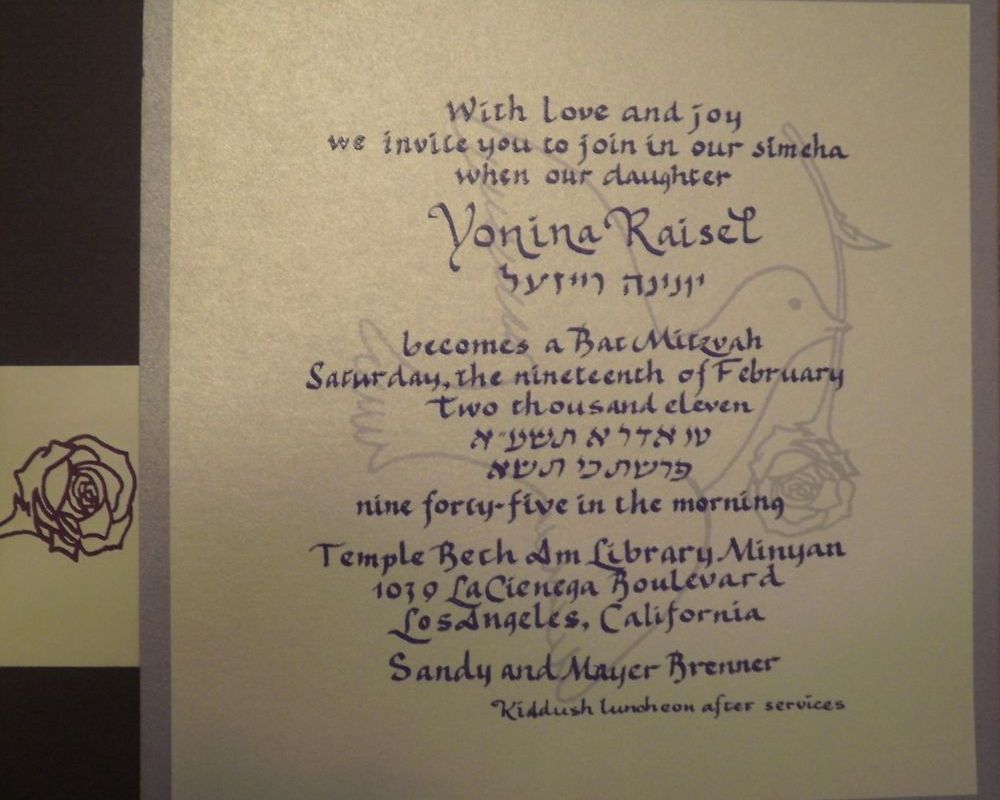 With Love and joy
we invite you to join in our simcha
when our daughter
Yonina Raisel
יונינה רייזעל
becomes a Bat Mitzvah
Saturday, the nineteenth of February
Two thousand eleven
טו אדר א תשע״א
פרשת כי תשא
nine forty-five in the morning
Temple Beth Am Library Minyan
1039 La Cienega Boulevard
Los Angeles, California
Sandy and Mayer Brenner
Kiddush luncheon after services